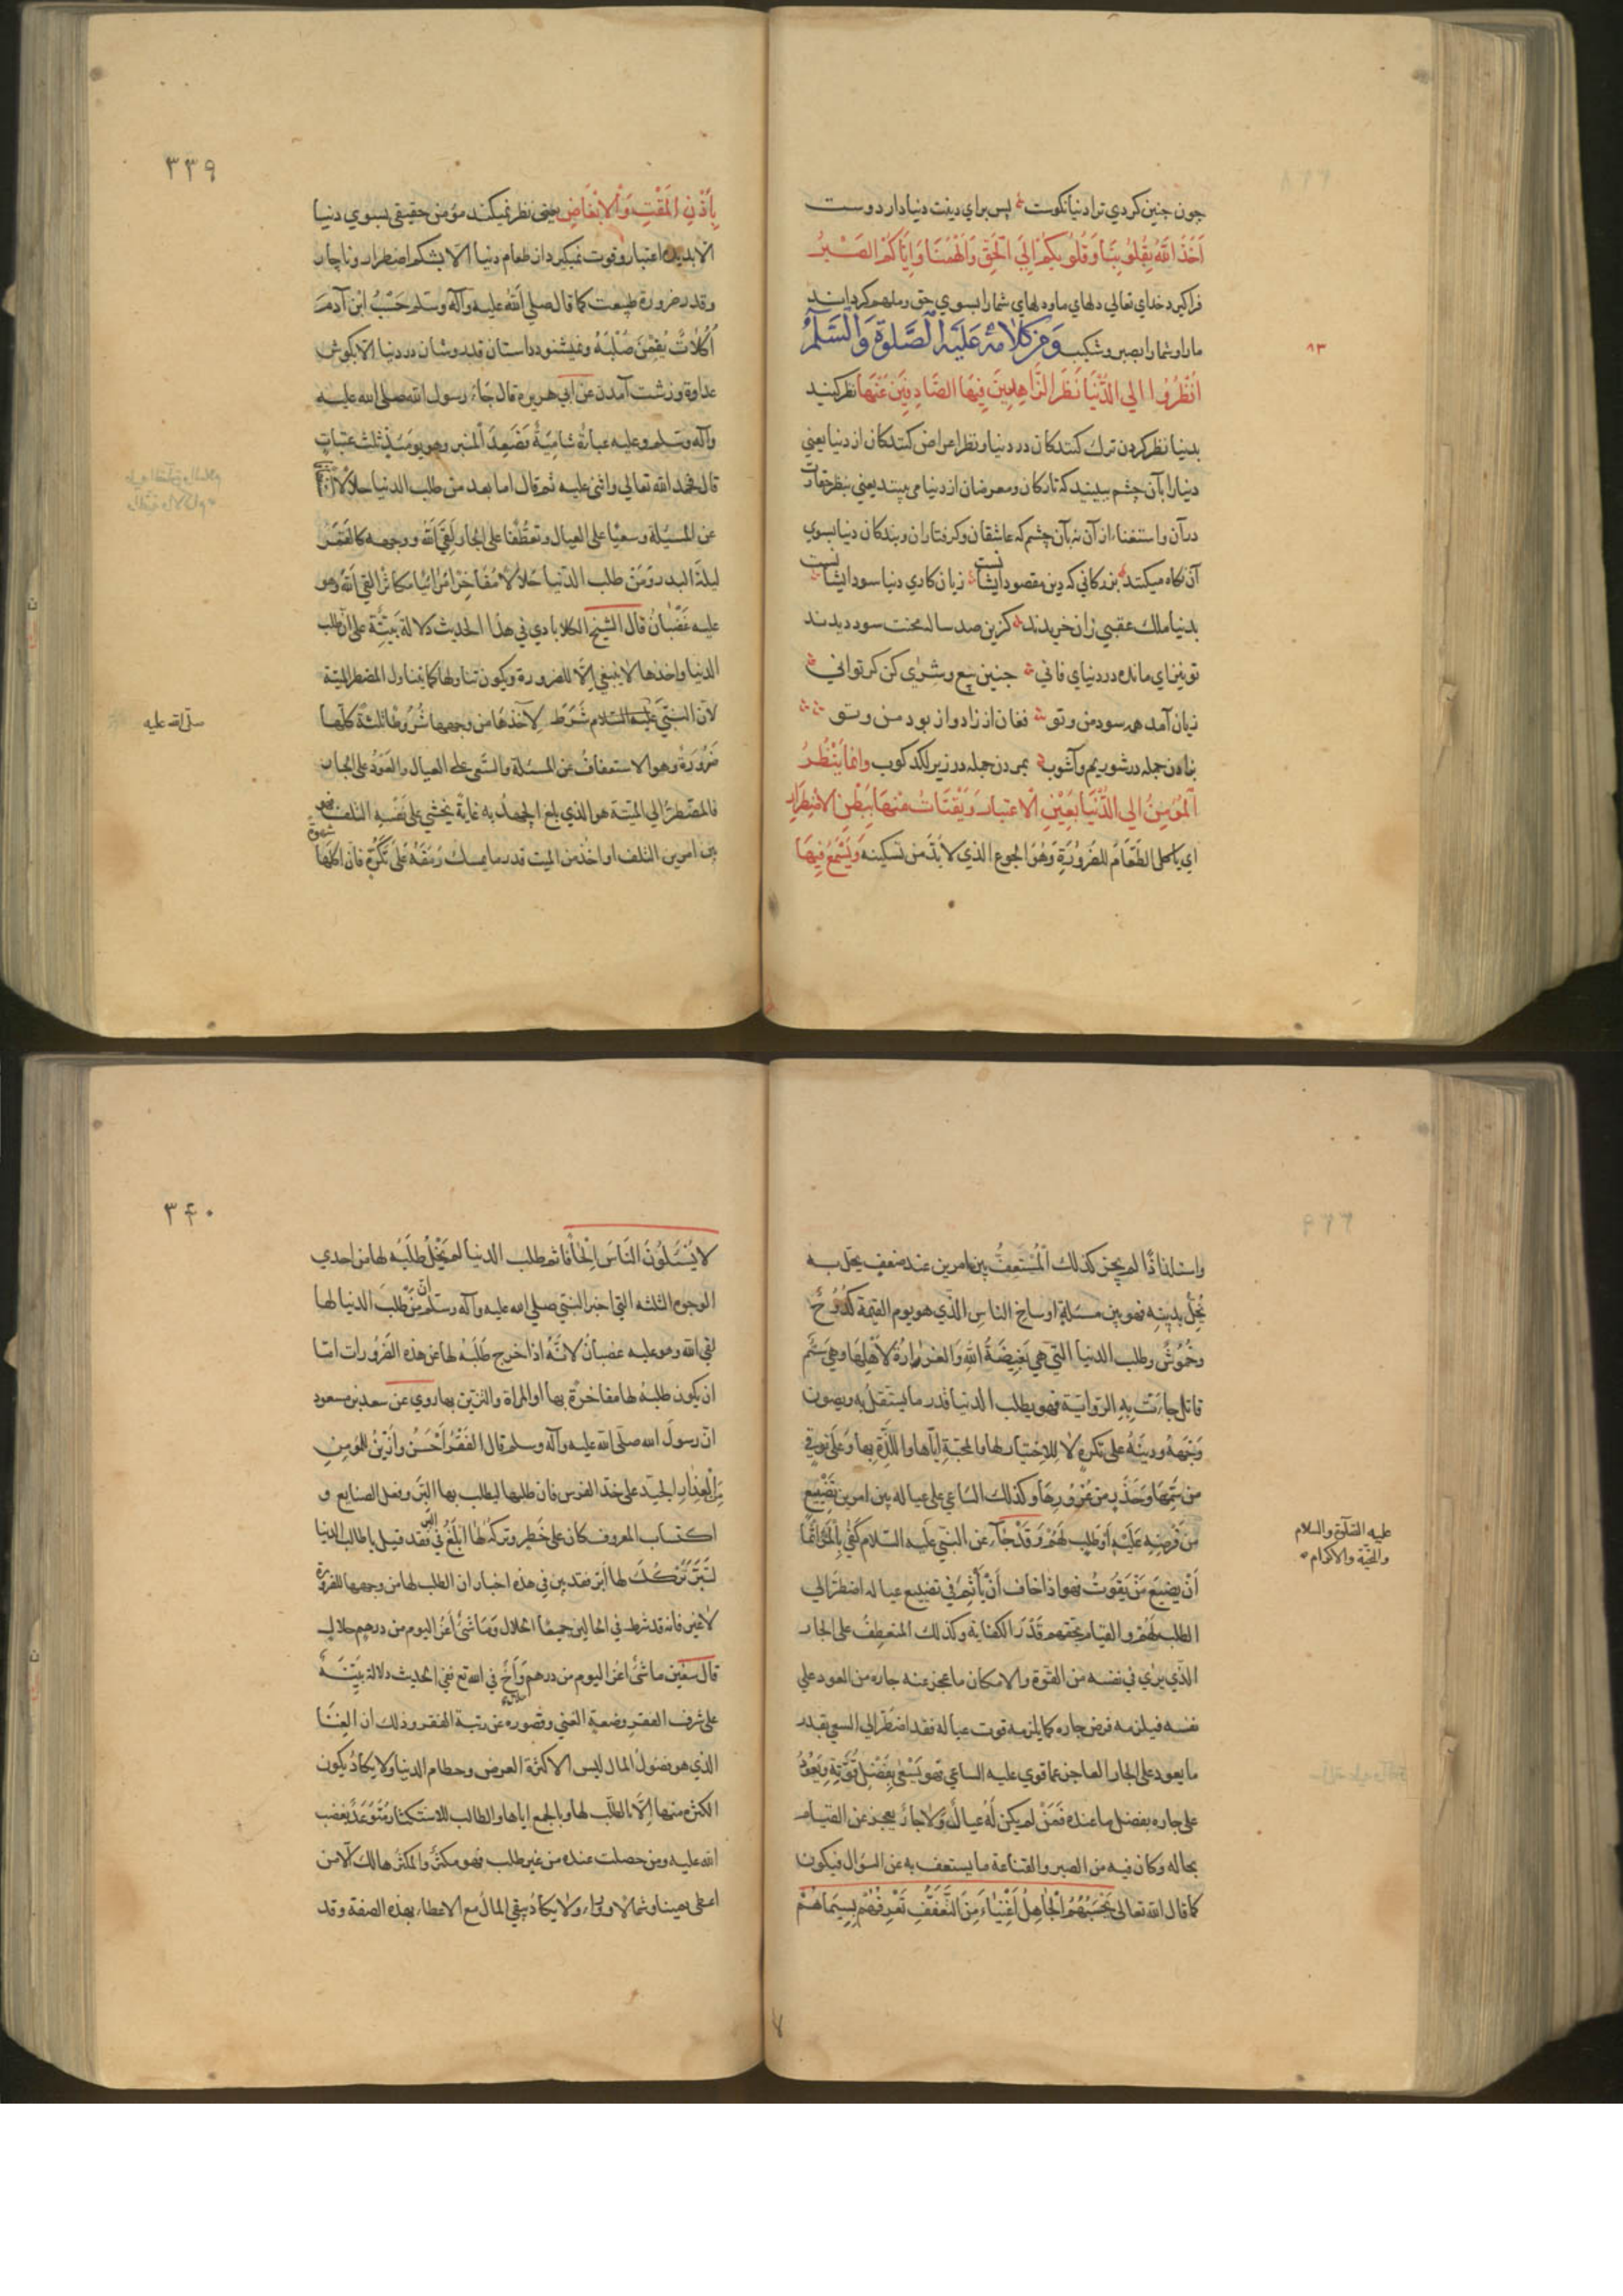 چون چنین کردی ترا دنیا نکوست پس برای دینت دنیا دار دوست
اَخَذَ اللّٰهُ بِقُلُوبِنَا وَقُلُوبِكُمْ اِلَى الْحَقِّ وَاَلْهَمَنَا وَاِيَّاكُمُ الصَّبْرَ
فراکیرد خدای تعالی دلهای ما و دلهای شما را بسوی حق و ملهم کرداند
ما را و شما را بصبر و شکیب وَمِنْ كَلَامِهِ عَلَيْهِ الصَّلٰوةُ وَالسَّلَامُ
۸۳
اُنْظُرُوا الي الدُّنْيَا نَظَرَ الزَّاهِدِينَ فِيهَا الصَّادِفِينَ عَنْهَا نظر کنید
بدنیا نظر کردن ترك کنندکان در دنیا و نظر اعراض کنندکان از دنیا یعنی
دنیا را بآن چشم ببینید که تارکان و معرضان از دنیا می بینند یعنی بنظر حقارت
در آن و استغناء از آن نه بآن چشم که عاشقان و کرفتاران و بندکان دنیا بسوی
آن نکاه میکنند بزرکانی که دین مقصود ایشانست زیان کاری دنیا سود ایشانست
بدنیا ملك عقبی زان خریدند کزین صد ساله محنت سود دیدند
تو نیز ای مانده در دنیای فانی چنین بیع و شری کن کر توانی
زیان آمد همه سود من و تو فغان از زاد و از بود من و تو
بزادن جمله در شوریم و آشوب بمردن جمله در زیر لکد کوب وانما يَنْظُرُ
الْمُؤمِنُ الي الدُّنْيَا بِعَيْنِ الاعتبار وَيَقْتَاتُ مِنْهَا بِبَطْنِ الاضْطِرَارِ
اي ياكل الطَّعَامَ للضرورَةِ وَهُوَ الجوع الذي لا بدّ من تسكينه وَيَسْمَعُ فِيهَا
۳۳۹
بِأُذُنِ الْمَقْتِ وَالْاِبْغَاضِ یعنی نظر نمیکند مؤمن حقیقی بسوی دنیا
الا بدیده اعتبار و قوت نمیکیرد از طعام دنیا الّا بشکم اضطرار و ناچار
و قدر ضرورة طبیعت كما قال صلي الله عليه وآله وسلم حَسْبُ ابْنِ آدَمَ
اُكُلَاتٌ يُقِمْنَ صُلْبَهُ و نمیشنود داستان قدر و شان در دنیا الا بکوش
عداوة و زشت آمدن عن ابي هريرة قال جَاءَ رسول الله صلى الله عليه
وآله وسلم وعليه عباءة شاميّة فَصَعِدَ المنبر وهو يومئذ ثلث عتبات
قال فحمد الله تعالى واثنى عليه ثم قال اما بعد من طلب الدنيا حلالا
عن المسئلة وسعيًا على العيال وتعطّفا على الجار لَقِيَ اللهَ ووجهه كالقمَر
ليلة البدر وَمَنْ طلب الدّنيا حلالا مُفَاخِرًا مُرَائيًا مكاثرًا لقي الله وهو
عليه غَضْبَانُ قال الشيخ الكلابادي في هذا الحديث دلالة بيّنة على انّ طلب
الدنيا واخذها لا ينبغي اِلّا للضرورة ويكون تناولها كما يتناول المضطر الميتة
لانّ النبيَّ عليه السلام شَرَطَ لآخذهَا من وجهها شُرُوطا ثلثة كلّها
صلّى الله عليه
ضَرُورَةٌ وهو الاستعفافُ عن المسئلة والسَّعي على العيال والعَوْدُ على الجار
فالمضطرُّ الي الميتة هو الذي بلغ الجهدُ به غاية يخشي على نفسه التلف فهو
بين امرين التلف او اخذ من الميت قدر ما يمسك رَمَقَهُ عَلى تَكَرُّهٍ فان اكلها شهوة
واستلذاذًا لم يجز كذلك الْمُستَعِفُّ بين امرين عند ضعف يحلّ به
يُخِلُّ بدينه فهو بين مسئلة اوساخ الناس الَّذي هو يوم القيمة كُدُوحٌ
وخُمُوشٌ وطلب الدنيا الَّتي هي بَغِيضَةُ اللهِ وَالْغَرَّارةُ لاَهْلِهَا وهي سَمٌّ
قاتل جاءت بهِ الرّوايَة فهو يطلب الدنيا قدر ما يستقلّ به ويصون
وَجْهَهُ ودِينَهُ على تكرهٍ لا للِاختيار لها والمحبّة اِيّاها واللَّذّة بها وَعَلَى تَوقٍّ
من سَمِّها وحَذَرٍ من غرُورهَا وكذلك السّاعي على عياله بين امرين تَضْييعِ
مَنْ فُرِضِه عَلَيْهِ اَوْ طلب لهُمْ وَقَدْ جَاءَ عن النبيّ عليه السّلام كفٰى بِالْمَرْءِ اِثمًا
عليه الصّلٰوة والسلام
والتحيّة والاكرام
اَنْ يضيعَ مَنْ يَقُوتُ فهو اذا خاف اَنْ يَأثمَ في تضييع عياله اضطَرّ الي
الطلب لَهُمْ والقيام بحقهم قَدْرَ الكفاية وكذلك المتعطِّفُ على الجار
الَّذي يرٰى في نفسه من القوّة والامكان ما عجز عنه جاره من العود علي
نفسه فيلزمه فرض جاره كما يلزمه قوت عياله فقد اضطرّ الي السعي بقدر
ما يعود على الجار العاجز عمّا قوي عليه الساعي فهو يَسْعٰى بِفَضْلِ قُوَّتِهِ وَيَعُودُ
على جاره بفضل ما عنده فَمَنْ لم يكن لَهُ عيالٌ وَلاٰ جارٌ يعجز عن القيام
بحاله وكان فيه من الصبر والقناعة ما يستعف به عن السؤال فيكون
كما قال الله تعالى يَحْسَبُهُمُ الْجَاهِلُ اَغْنِيَاءَ مِنَ التَّعَفُّفِ تَعْرِفُهُمْ بِسِيمَاهُمْ
۳۴۰
لا يَسْئَلُونَ النَّاسَ اِلْحَافًا ثم طلب الدنيا لم يَخْلُ طَلَبُهُ لها من احدي
الوجوه الثلثة التي اخبر النبيّ صلي الله عليه وآله وسلم أنّ مَنْ طَلَبَ الدنيا لها
لقي الله وهو عليه غضبان لاَنَّهُ اذا خرج طَلَبُهُ لها عن هذه الضَّرُورات امّا
ان يكون طلبُه لها مفاخرة بها او المراة والتزيّن بها روي عن سعد بن مسعود
انّ رسولَ الله صلّى الله عليه وآله وسلم قال الفَقْرُ اَحْسَنُ واَزْيَنُ للمؤمِنِ
مِنَ الْعِذارِ الجيّد على خدّ الفرس فان طلبها ليطلب بها البِرَّ وفعل الصنايع و
اكتساب المعروف كان على خَطَرٍ وتركه لها اَبْلَغُ في البرّ فقد قيل يا طالب الدنيا
لتَبَرَّ تَرْكُكَ لها اَبَرّ فقد بيّن في هذه اخبار ان الطلب لها من وجهها للضرورة
لا غير فانه قد شرط في الحالين جميعًا الحلال وَمَا شئٌ اَعزّ اليوم من درهم حلال
قال سفين ما شئ اعزّ اليوم من درهم حلال وَأخٍ في الله تع ففي الحديث دلالة بيّنَة
على شرف الفقر وضعة الغني وقصوره عن رتبة الفقر وذلك ان الغِنَا
الذي هو فضولُ المال ليس الا كثرة العروض وحطام الدنيا ولا يكادُ يكون
الكثرة منها الّا بالطلب لها وبالجمع اياها والطالب للاستكثار مُتَوَعَّدٌ بغضب
الله عليه ومن حصلت عنده من غير طلب فهو مكثرٌ والمكثرُ هالك الّا من
اعطى يمينا وشمالا ووراء ولاٰ يكادُ يبقي المالُ مع الاعطاء بهذه الصفة وقد